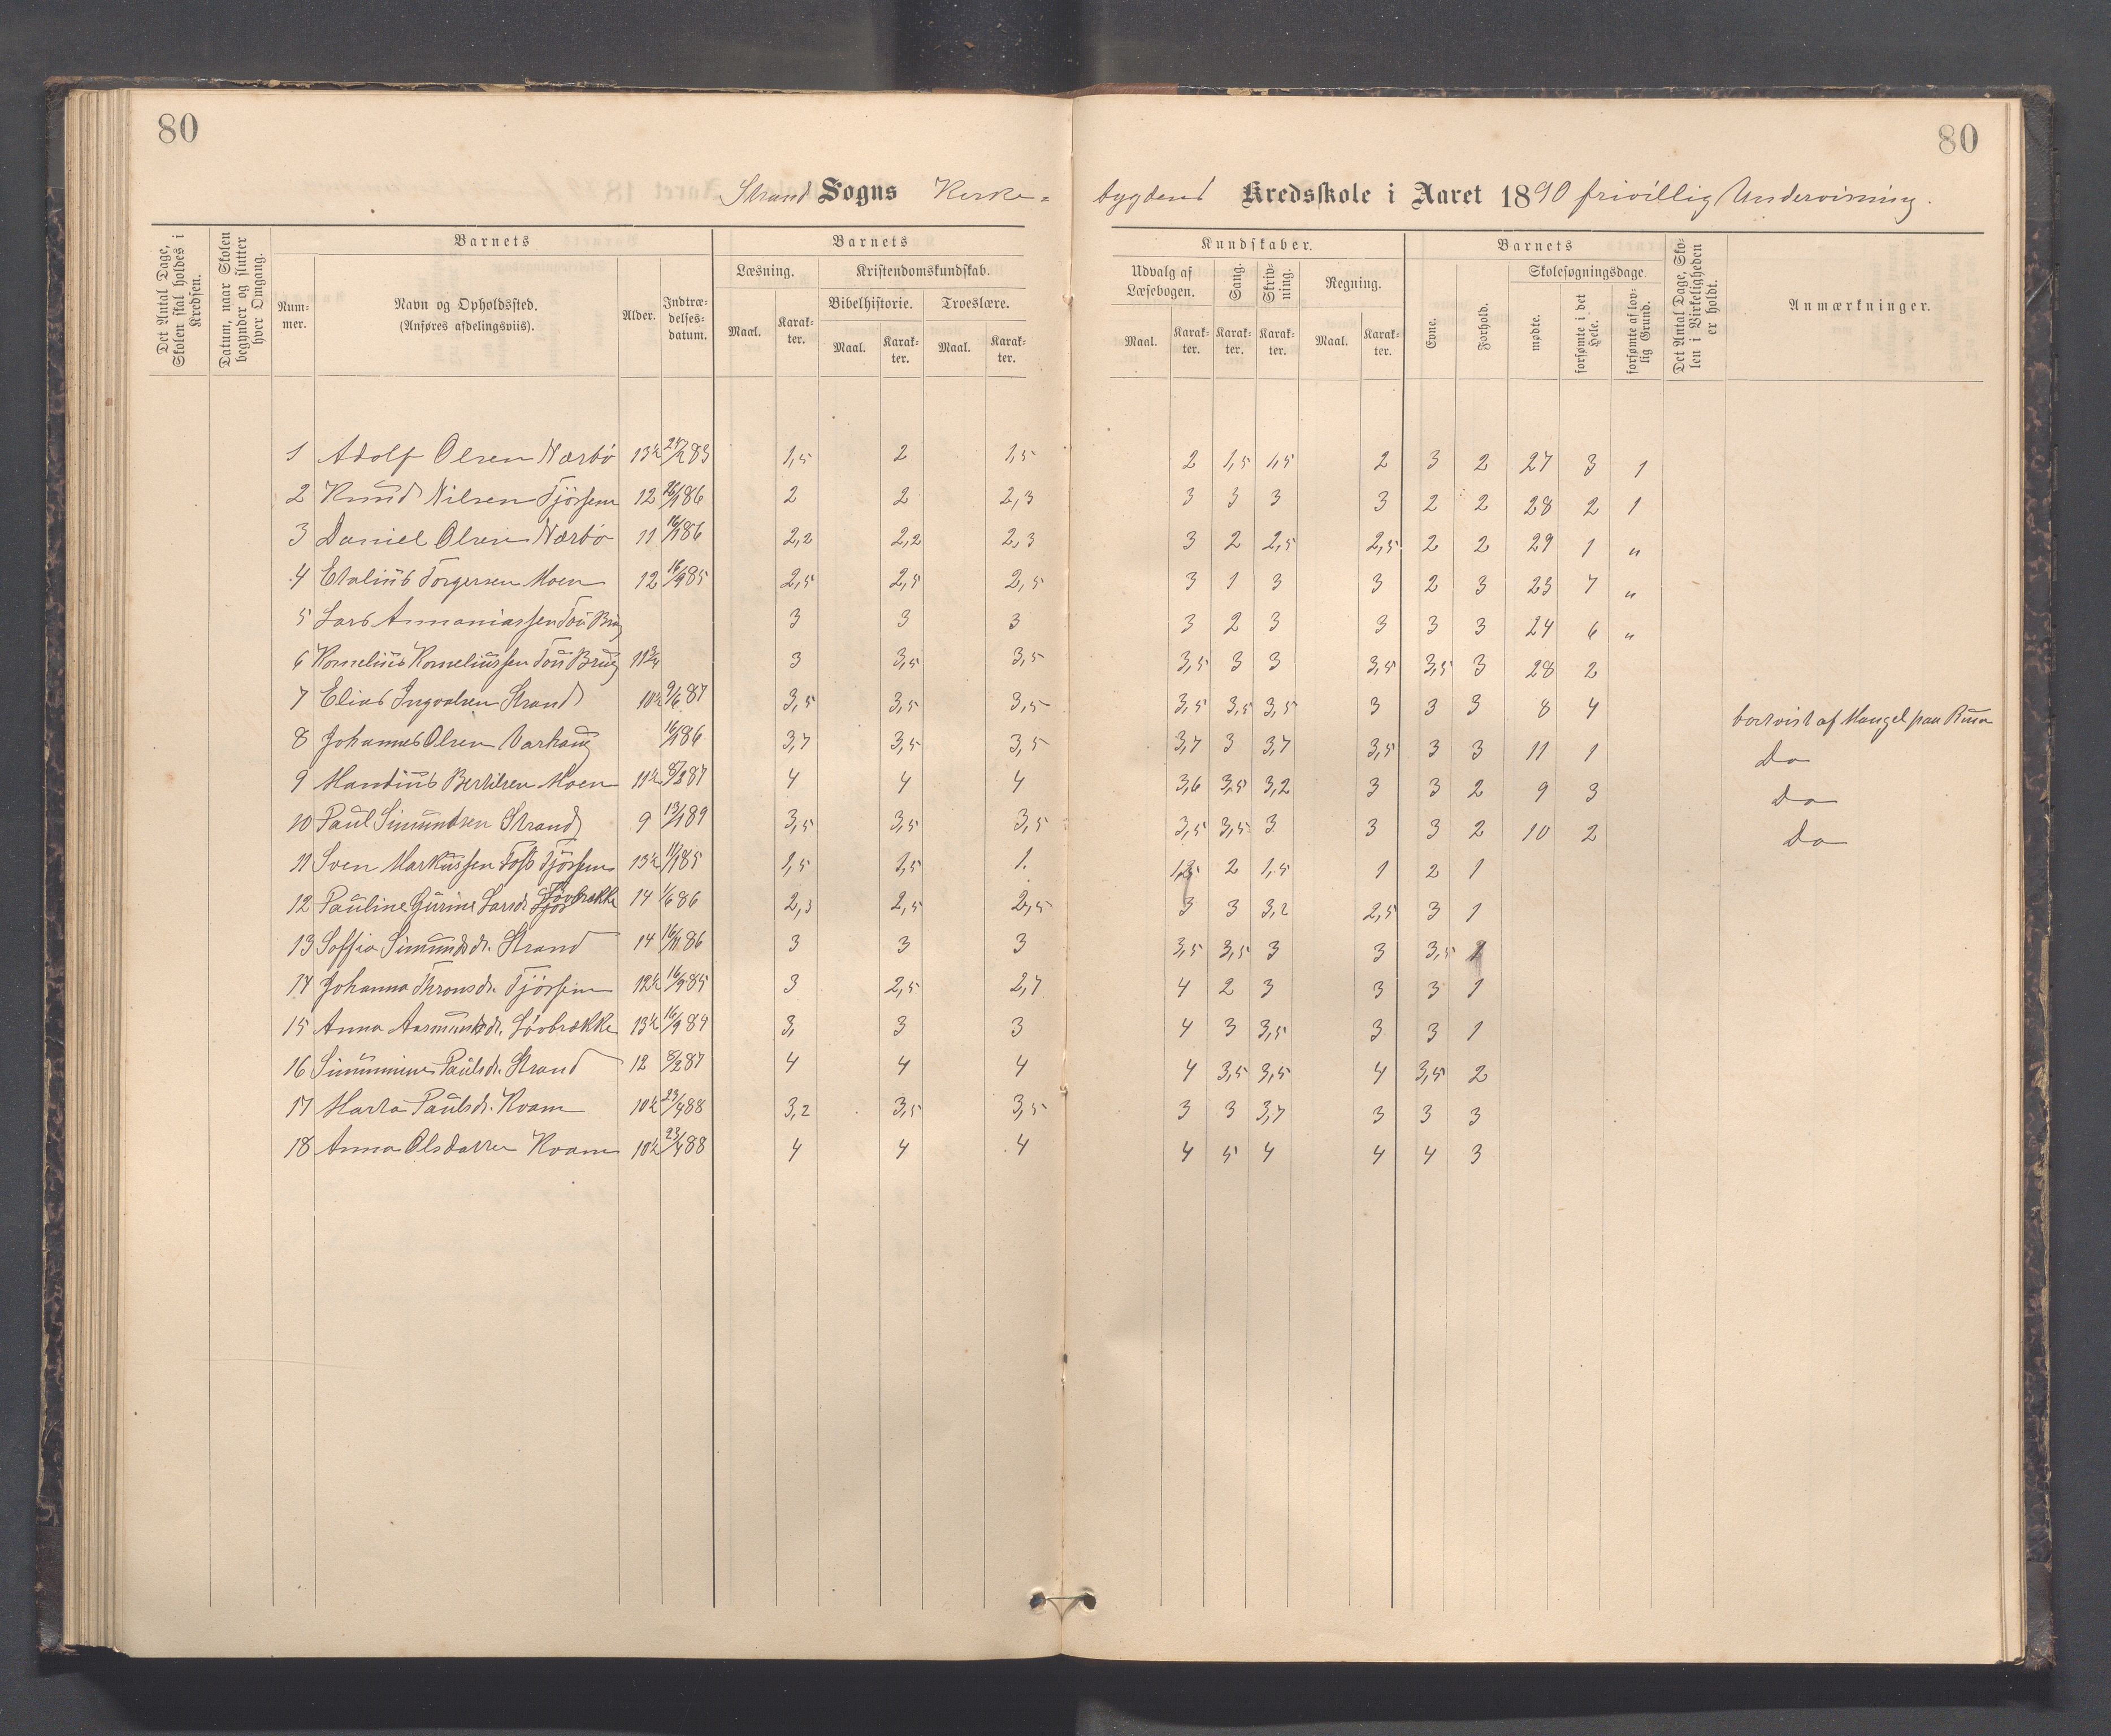 80
80
Strand Sogns Kirke-
bygdens Kredsskole i Aaret 1890 frivillig Undervisning.
Det Antal Dage, Skolen skal holdes i Kredsen.
Datum, naar Skolen begynder og slutter hver Omgang.
Barnets
Num-mer.
Navn og Opholdssted. (Anføres afdelingsviis).
Alder.
Indtræ-delses-datum.
Barnets
Læsning.
Maal. Karak-ter.
Kristendomskundskab.
Bibelhistorie. Troeslære.
Maal. Karak-ter. Maal. Karak-ter.
Kundskaber.
Udvalg af Læsebogen. Sang. Skriv-ning. Regning.
Maal. Karak-ter. Karak-ter. Karak-ter. Maal. Karak-ter.
Barnets
Evne. Forhold.
Skolesøgningsdage.
mødte. forsømte i det Hele. forsømte af lov-lig Grund.
Det Antal Dage, Sko-len i Virkeligheden er holdt.
Anmærkninger.
1 Adolf Olsen Nærbö 13½ 83 1,5 2 1,5 2 1,5 1,5 2 3 2 27 3 1
2 Knud Nilsen Tjössem 12 86 2 2 2,3 3 3 3 3 2 2 28 2 1
3 Daniel Olsen Nærbö 11 86 2,2 2,2 2,3 3 2 2,5 2,5 2 2 29 1 "
4 Torgersen Moen 12 16/9 85 2,5 2,5 2,5 3 1 3 3 2 3 23 7 "
5 Lars Tou Brug 3 3 3 3 2 3 3 3 3 24 6 "
6 Kornelius Korneliussen Tou Brug 11¾ 3 3,5 3,5 3,5 3 3 3,5 3,5 3 28 2
7 Elias Ingvalsen Strand 10½ 9/6 87 3,5 3,5 3,5 3,5 3,5 3,5 3 3 3 8 4 bortvist af Mangel paa Rum
8 Johannes Olsen Varhaug 86 3,7 3,5 3,5 3,7 3 3,7 3,5 3 3 11 1 Do
9 Bertilsen Moen 11½ 87 4 4 4 3,6 3,5 3,2 3 3 2 9 3 Do
10 Paul Simundsen Strand 9 13/1 89 3,5 3,5 3,5 3,5 3,5 3 3 3 2 10 2 Do
11 Sven Markussen Tjössem 13½ 85 1,5 1,5 1. 2 1,5 1 2 1
12 Pauline Gurine Larsdr. Lövbrække 14 1/6 86 2,3 2,5 2,5 3 3 3,2 2,5 3 1
13 Soffia Simundsdr. Strand 14 86 3 3 3 3,5 3,5 3 3 3,5
14 Johanna Thronsdr. Tjössem 12½ 16/9 85 3 2,5 2,7 4 2 3 3 3 1
15 Anna Aasmundsdr. Lövbrække 13½ 16/9 84 3, 3 3 4 3 3,5 3 3 1
16 Paulsdr. Strand 12 87 4 4 4 4 3,5 3,5 4 3,5 2
17 Marta Paulsdr. Kvam 10½ 23/4 88 3,2 3,5 3,5 3 3 3,7 3 3 3
18 Anna Olsdatter Kvam 10½ 23/4 88 4 4 4 4 5 4 4 4 3